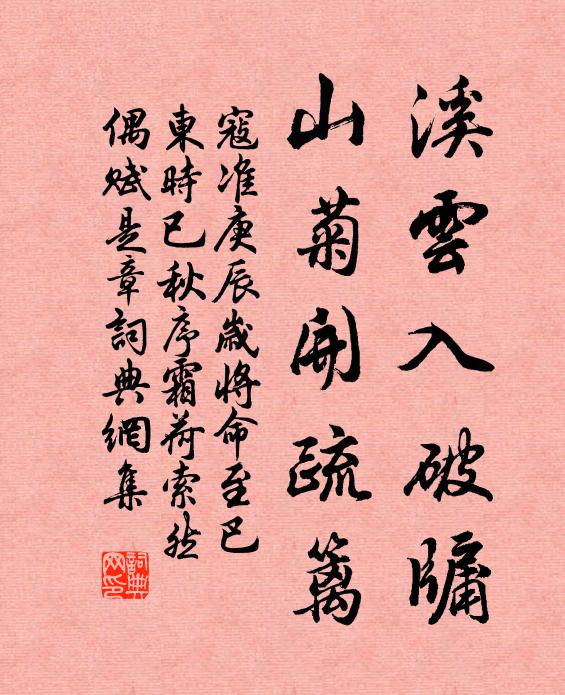 溪雲入破牖
山菊開疏籬
寇准庚辰歲將命至巴
東時已秋序霜荷索然
偶賦是章詞典網集
詞典网印